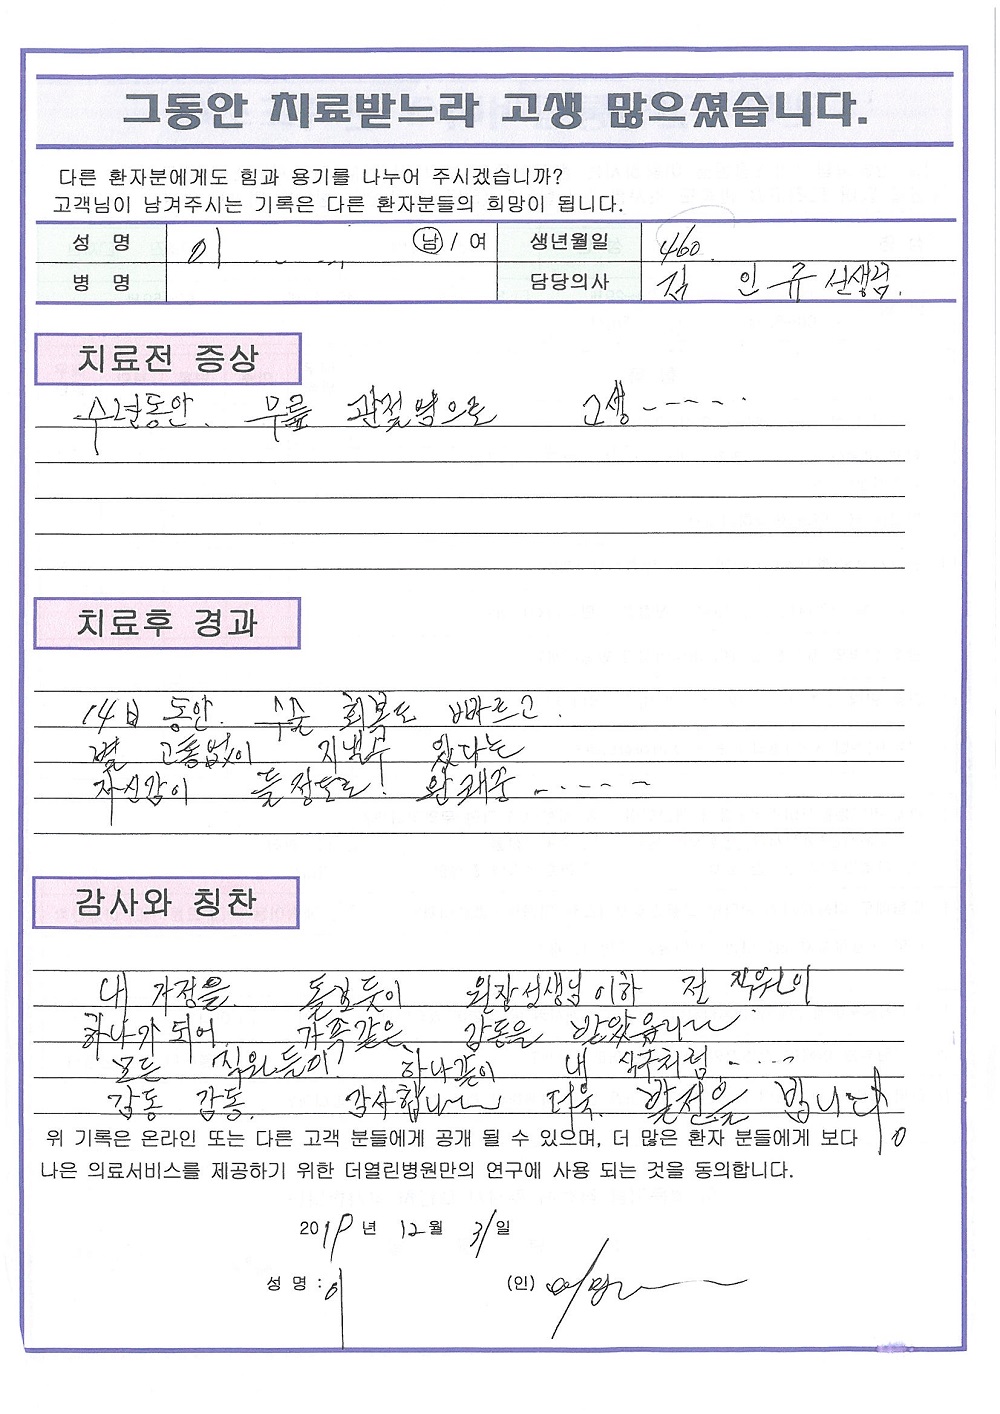 그동안 치료받느라 고생 많으셨습니다.
다른 환자분에게도 힘과 용기를 나누어 주시겠습니까?
고객님이 남겨주시는 기록은 다른 환자분들의 희망이 됩니다.
성 명 이 남 / 여 생년월일 460
병 명 담당의사 인규 선생님.
치료전 증상
수년동안. 무릎 관절염으로 고생-----.
치료후 경과
14일 동안. 수술 회복도 빠르고.
별 고통없이 지낼수 있다는
자신감이 들정도로! 완쾌중-----
감사와 칭찬
내 가정을 돌보듯이 원장선생님 이하 전 직원이
하나가 되어. 가족같은 감동을 받았읍니다
모든 직원들이 하나같이 내 식구처럼.----
감동 감동. 감사합니다 더욱. 발전을 빕니다
위 기록은 온라인 또는 다른 고객 분들에게 공개 될 수 있으며, 더 많은 환자 분들에게 보다
나은 의료서비스를 제공하기 위한 더열린병원만의 연구에 사용 되는 것을 동의합니다.
2019년 12월 31일
성 명 : 이 (인)